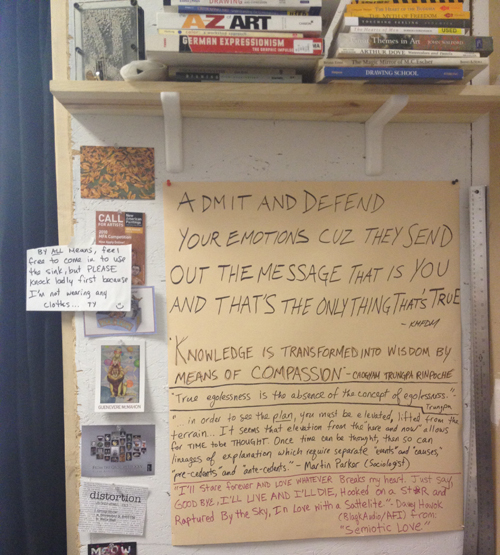 DRAWING
AZ ART
GERMAN EXPRESSIONISM
THE GRAPHIC IMPULSE
THE MYTH OF FREEDOM
USED
Themes in Art
ARTHUR DOVE
The Magic Mirror of M.C. Escher
DRAWING SCHOOL
CALL
FOR ARTISTS
BY ALL Means, feel
free to come in to use
the sink, but PLEASE
knock loudly first because
I'm not wearing any
clothes... TY
distortion
MEOW
ADMIT AND DEFEND
YOUR EMOTIONS CUZ THEY SEND
OUT THE MESSAGE THAT IS YOU
AND THAT'S THE ONLY THING THAT'S TRUE
- KMFDM
KNOWLEDGE IS TRANSFORMED INTO WISDOM BY
MEANS OF COMPASSION - CHOGYAM TRUNGPA RINPOCHE
"True egolessness is the absence of the concept of egolessness." -
Trungpa
"... in order to see the plan, you must be elevated, lifted from the
terrain... It seems that elevation from the "here and now" allows
for TIME TO BE THOUGHT. Once time can be thought, then so can
lineages of explanation which require separate "ends" and "causes"
"pre-cedents" and "ante-cedents." - Martin Parker (Sociologist)
"I'll stare forever AND LOVE WHATEVER Breaks my heart. Just say,
GOOD BYE, I'LL LIVE AND I'LL DIE, Hooked on a St★R and
Raptured By the Sky, In Love with a Sattelite" - Davey Havok
(BlaqkAudio/AFI) from:
"Semiotic Love"